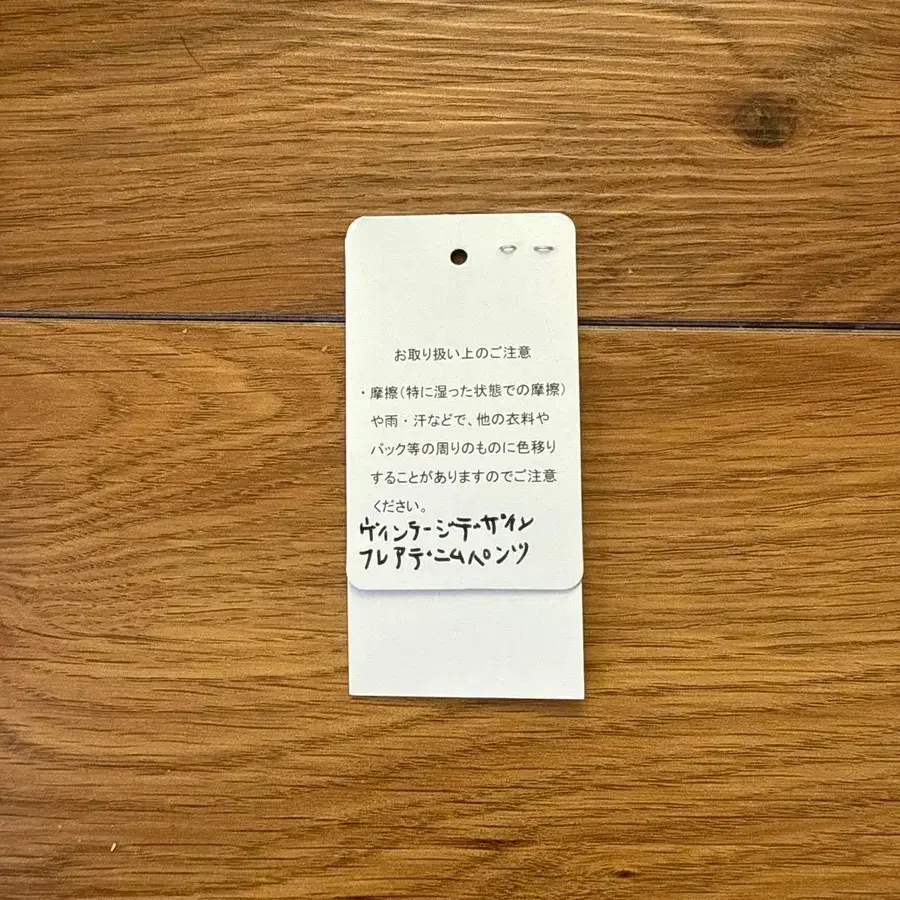 お取り扱い上のご注意
・摩擦(特に湿った状態での摩擦)
や雨・汗などで、他の衣料や
バック等の周りのものに色移り
することがありますのでご注意
ください。
ヴィンテージデザイン
フレアデニムパンツ